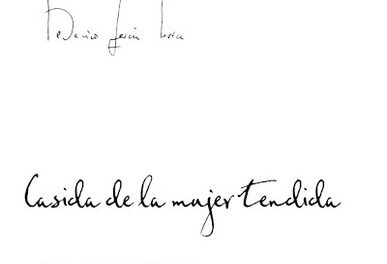 Federico García Lorca
Casida de la mujer tendida